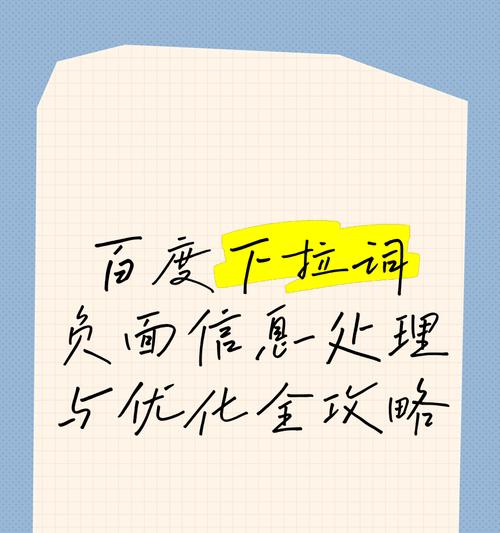 百度下拉词
负面信息处理
与优化全攻略